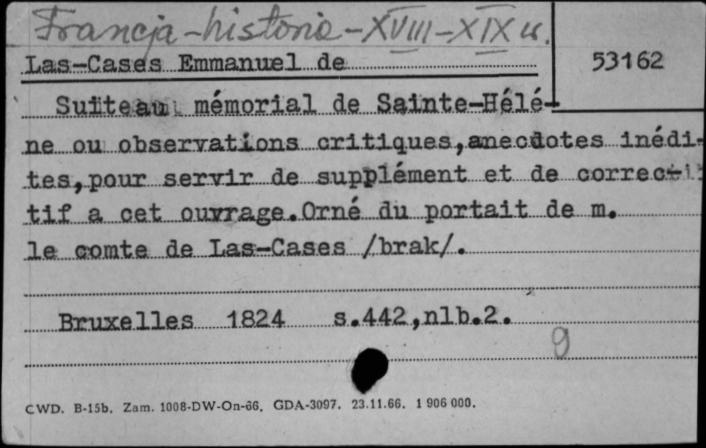 Francja-historia-XVIII-XIX w.
Las-Cases Emmanuel de
53162
Suite au mémorial de Sainte-Hélé-
ne ou observations critiques,anecdotes inédi-
tes,pour servir de supplément et de correc-
tif a cet ouvrage.Orné du portait de m.
le comte de Las-Cases /brak/.
Bruxelles 1824 s.442,nlb.2.
9
CWD. B-15b. Zam. 1008-DW-On-66. GDA-3097. 23.11.66. 1 906 000.